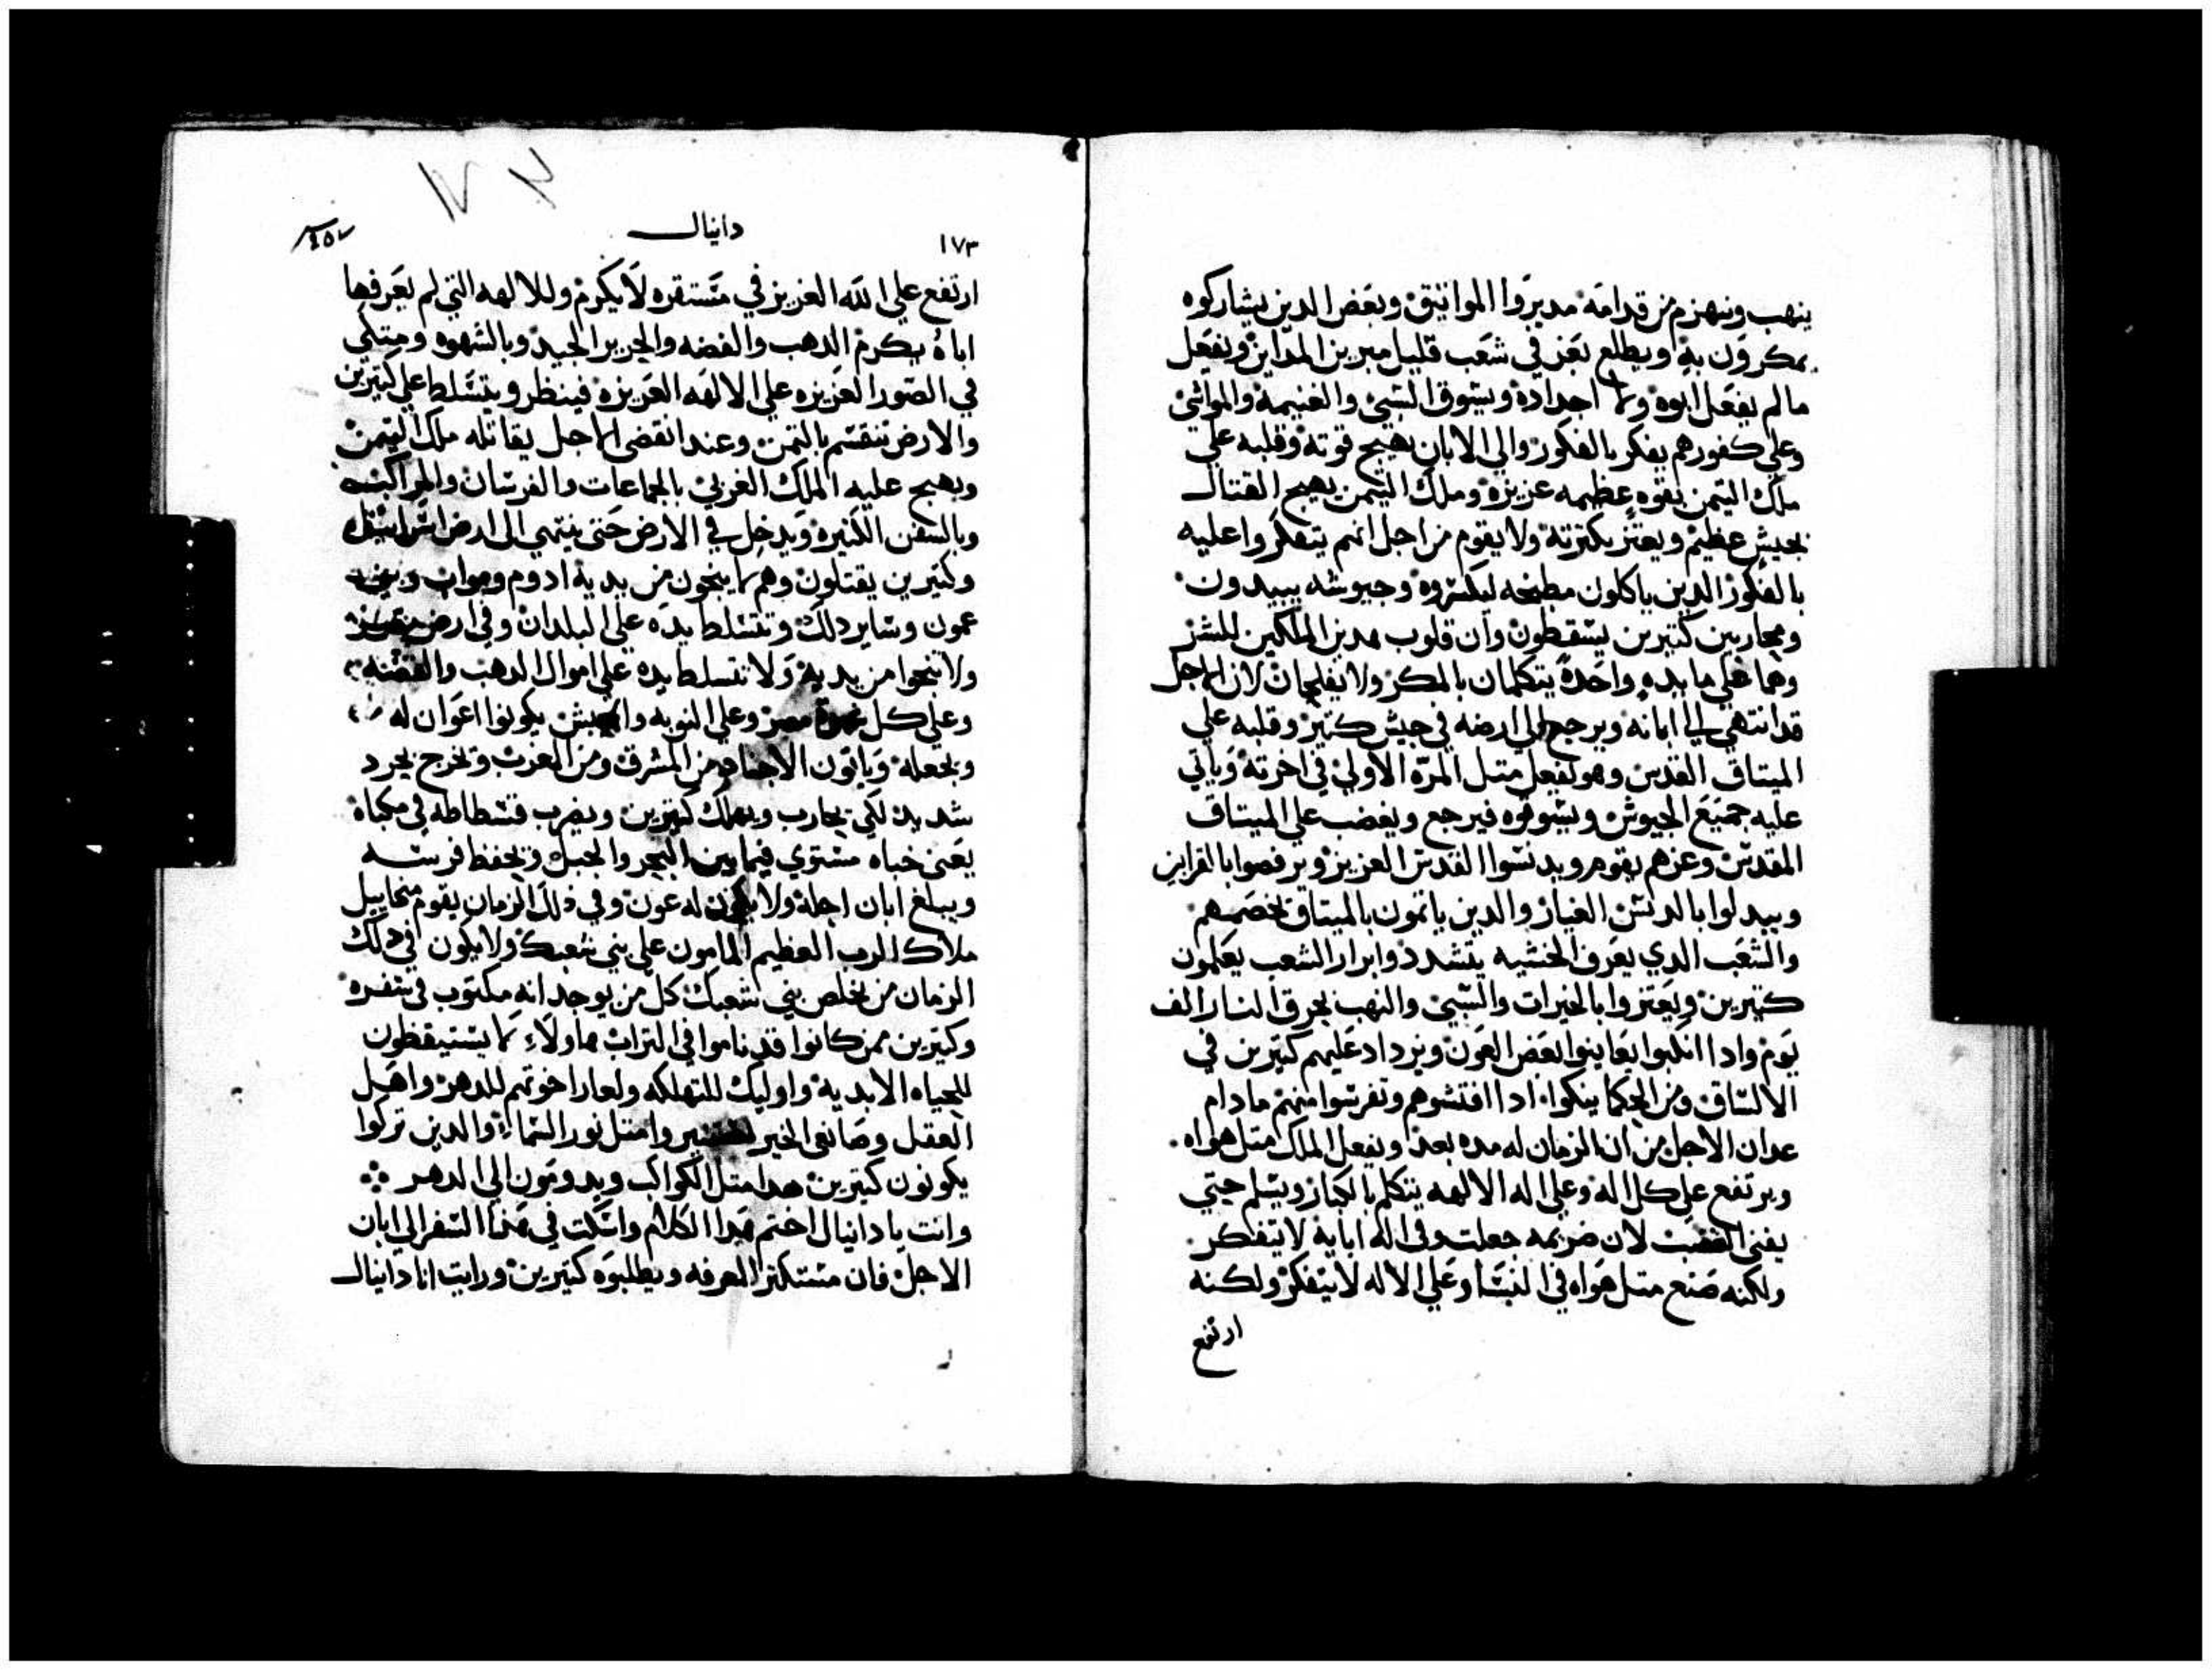 ينهب وينهزم من قدامه مديروا المواتيق وبعض الدين يشاركوه
يمكرون به ويطلع بعز في شعب قليل مبرين المداين ويفعل
مالم يفعل ابوه ولا اجداده ويسوق السبي والغنيمه والمواشي
وعلي كفورهم يفكر بالفكور والي الابان يهيج قوته وقلبه علي
ملك التيمن بقوه عظيمه عزيزه وملك التيمن يهيج القتال
بجيش عظيم ويعتز بكترته ولا يقوم من اجل انهم يتفكروا عليه
بالفكور الدين ياكلون مطبخه ليكسروه وجيوشه يبيدون
ومحاربين كتيرين يسقطون وان قلوب هدين الملكين للشر
وهما علي مايده واحدة يتكلمان بالمكر ولا يفلحان لان الاجل
قد انتهي الي ابانه ويرجع الي ارضه في جيش كتير وقلبه علي
الميتاق القدس وهو يفعل متل المرة الاولي في اخرته وياتي
عليه جميع الجيوش ويسوقوه فيرجع ويغضب علي الميتاق
المقدس وعزهم يقوم ويدنسوا القدس العزيز ويرفصوا بالقرابين
ويبدلوا بالدنس الغيار والدين ياتمون بالميتاق بخصمهم
والشعب الدي يعرف الخشيه يتشدد وابرار الشعب يعلمون
كتيرين ويعتزوا بالخيرات والسبي والنهب بحرق النار الف
يوم وادا انكبوا يعاينوا بعض العون ويزداد عليهم كتيرين في
الالساق ومن الحكما ينكوا ادا افتشوهم وتفرسوا منهم مادام
عدان الاجل من ان الزمان له مده بعد ويفعل الملك متل هواه
ويرتفع علي كل اله وعلي اله الالهه يتكلم بالكبار ويسلم حتي
يفني الغضب لان ضريمه جعلت وفي اله ابايه لا يتفكر
ولكنه صنع متل هواه في النسا وعلي الاله لا يتفكر ولكنه
ارتفع
١٧٣ دانيال
ارتفع علي الله العزيز في مستقره لا يكرم وللالهه التي لم يعرفها
اباه يكرم الدهب والفضه والحرير الجيد وبالشهوه ومتلي
في الصور العزيزه علي الالهه العزيزه فينظر ويتسلط علي كتيرين
والارض تنقسم بالتمن وعند انقضي الاجل يقاتله ملك التيمن
ويهيج عليه الملك الغربي بالجماعات والفرسان والمراكب
وبالسفن الكتيره ويدخل في الارض حتي ينتهي الي ارض اسراييل
وكتيرين يقتلون وهم لا ينجون من يديه ادوم ومواب وبني
عمون وساير دلك وتتسلط يده علي البلدان وفي ارض مصر
ولا ينجوا من يديه ولا تتسلط يده علي اموال الدهب والفضه
وعلي كل مصر وعلي النوبه والحبش يكونوا اعوان له
ويجعله وياتون الاجناد من المشرق ومن الغرب ويخرج بحرد
شديد لكي يحارب ويهلك كتيرين ويضرب فسطاطه في مكباه
يعني خباه مستوي فيما بين البحر والجبل ويحفظ فرسه
ويبلغ ابان اجله ولا يكون له عون وفي دلك الزمان يقوم مخاييل
ملاك الرب العظيم المامون علي بني شعبك ولا يكون في دلك
الزمان من يخلص بني شعبك كل من يوجد انه مكتوب في سفره
وكتيرين ممن كانوا قد ناموا في التراب هاولاء لا يستيقظون
للحياه الابديه واوليك للتهلكه ولعار اخوتهم للدهر واهل
العقل وصانعي الخير متل نور السماء والدين تركوا
يكونون كتيرين هدا متل الكواكب ويدومون الي الدهر
وانت يا دانيال اختم هدا الكلام واسكت في هدا السفر الي ابان
الاجل فان مستكتر المعرفه ويطلبوه كتيرين ورايت انا دانيال